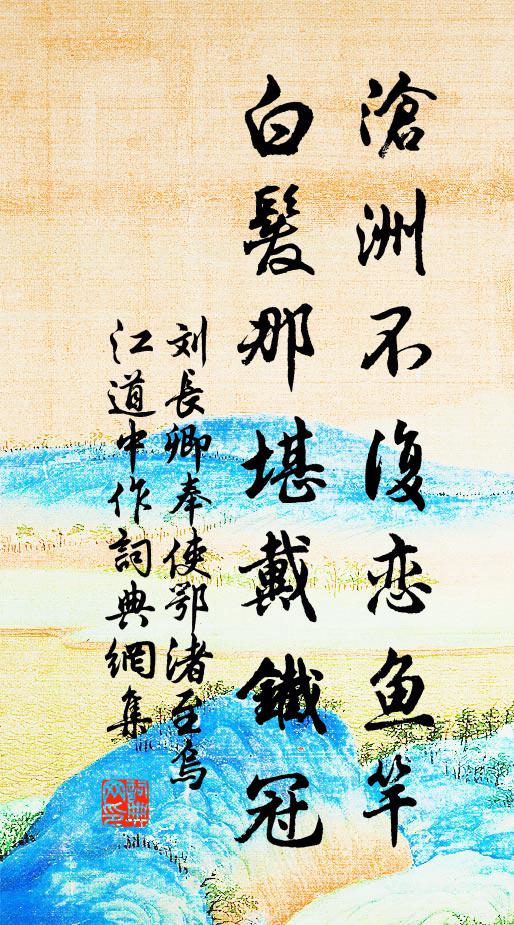 滄洲不復恋魚竿
白髮那堪戴鐵冠
刘長卿奉使鄂渚至烏
江道中作詞典網集